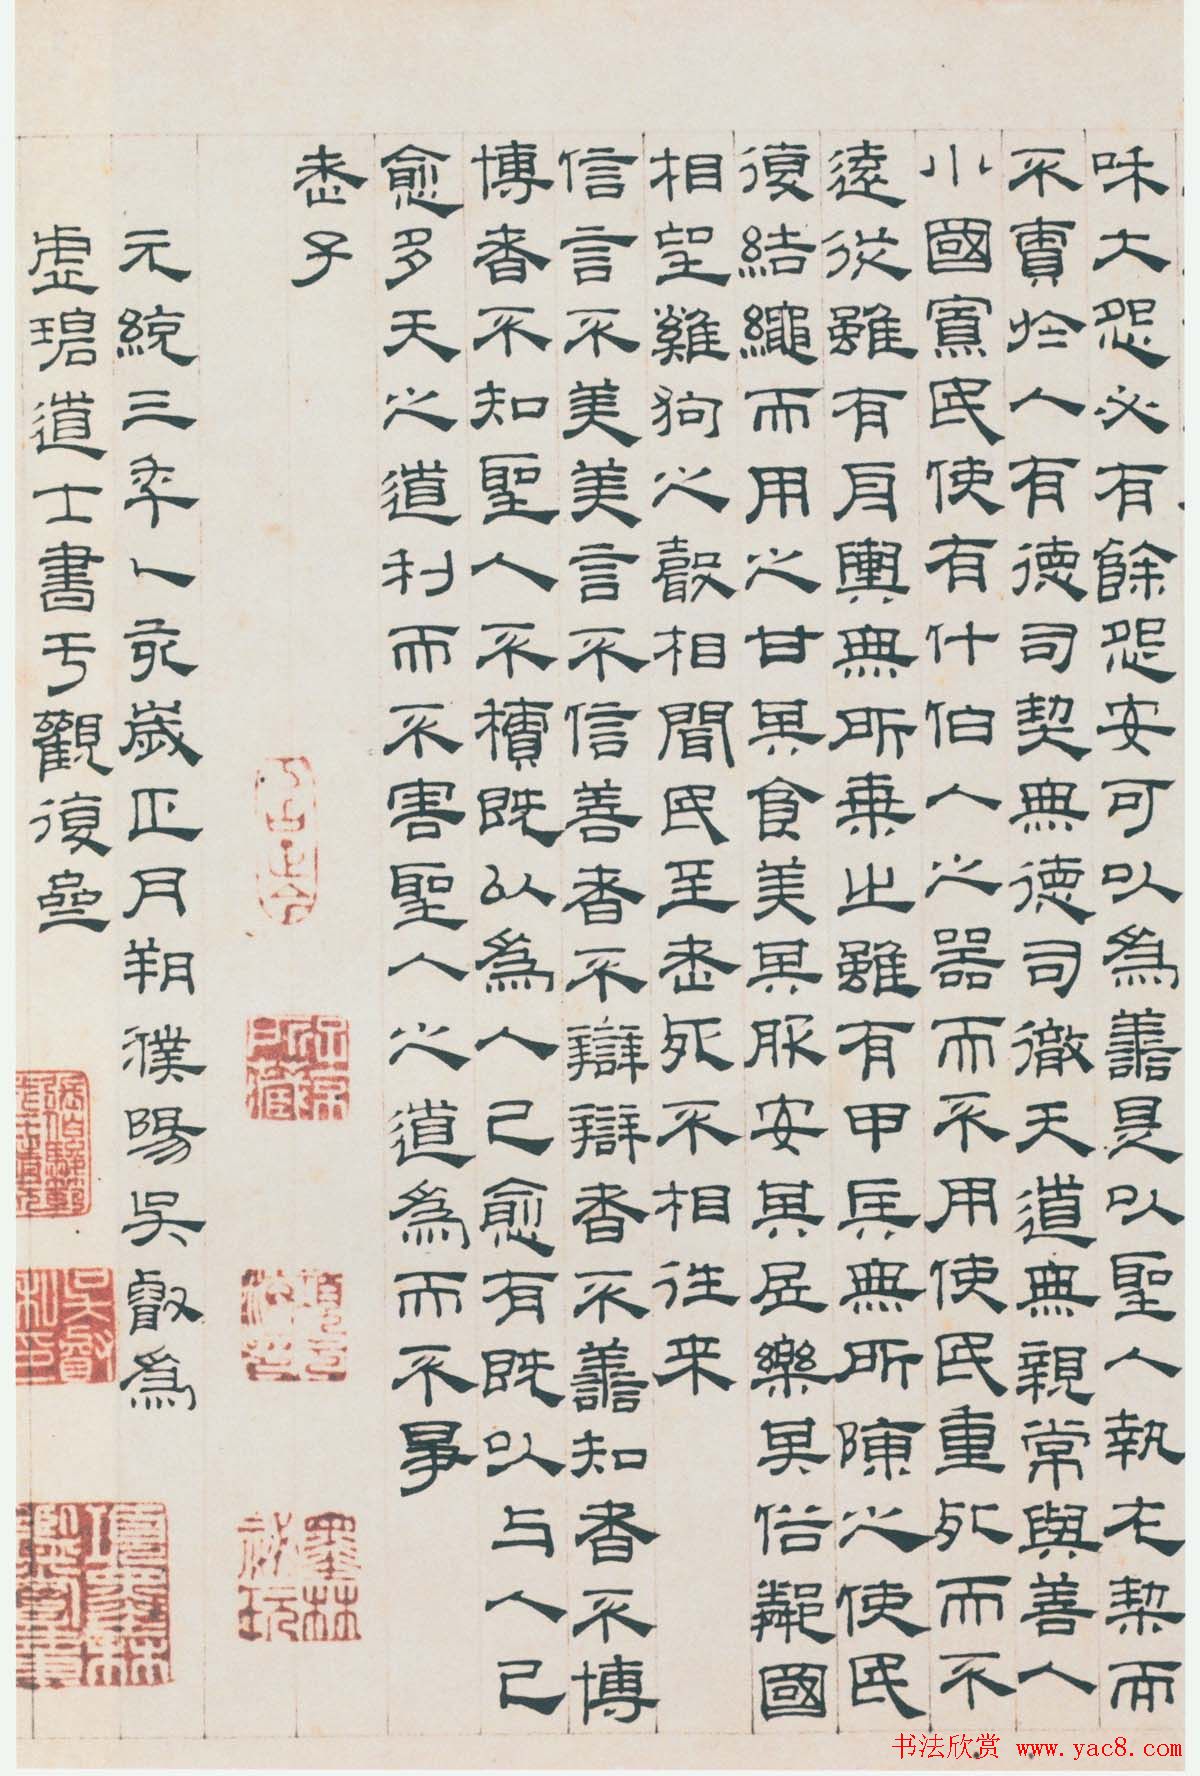 咊大怨必有餘怨安可以為譱是以聖人執左契而
不責於人有德司契無德司徹天道無親常與善人
小國寡民使有什伯人之器而不用使民重死而不
遠徙雖有舟輿無所乘之雖有甲兵無所陳之使民
復結繩而用之甘其食美其服安其居樂其俗鄰國
相望雞狗之聲相聞民至老死不相往来
信言不美美言不信善者不辯辯者不譱知者不博
博者不知聖人不積既以為人己愈有既以与人己
愈多天之道利而不害聖人之道為而不爭
老子
元統三年乙亥歲正月朔濮陽吳叡為
虛碧道士書于觀復
墨林祕玩
吳叡私印
书法欣赏 www.yac8.com